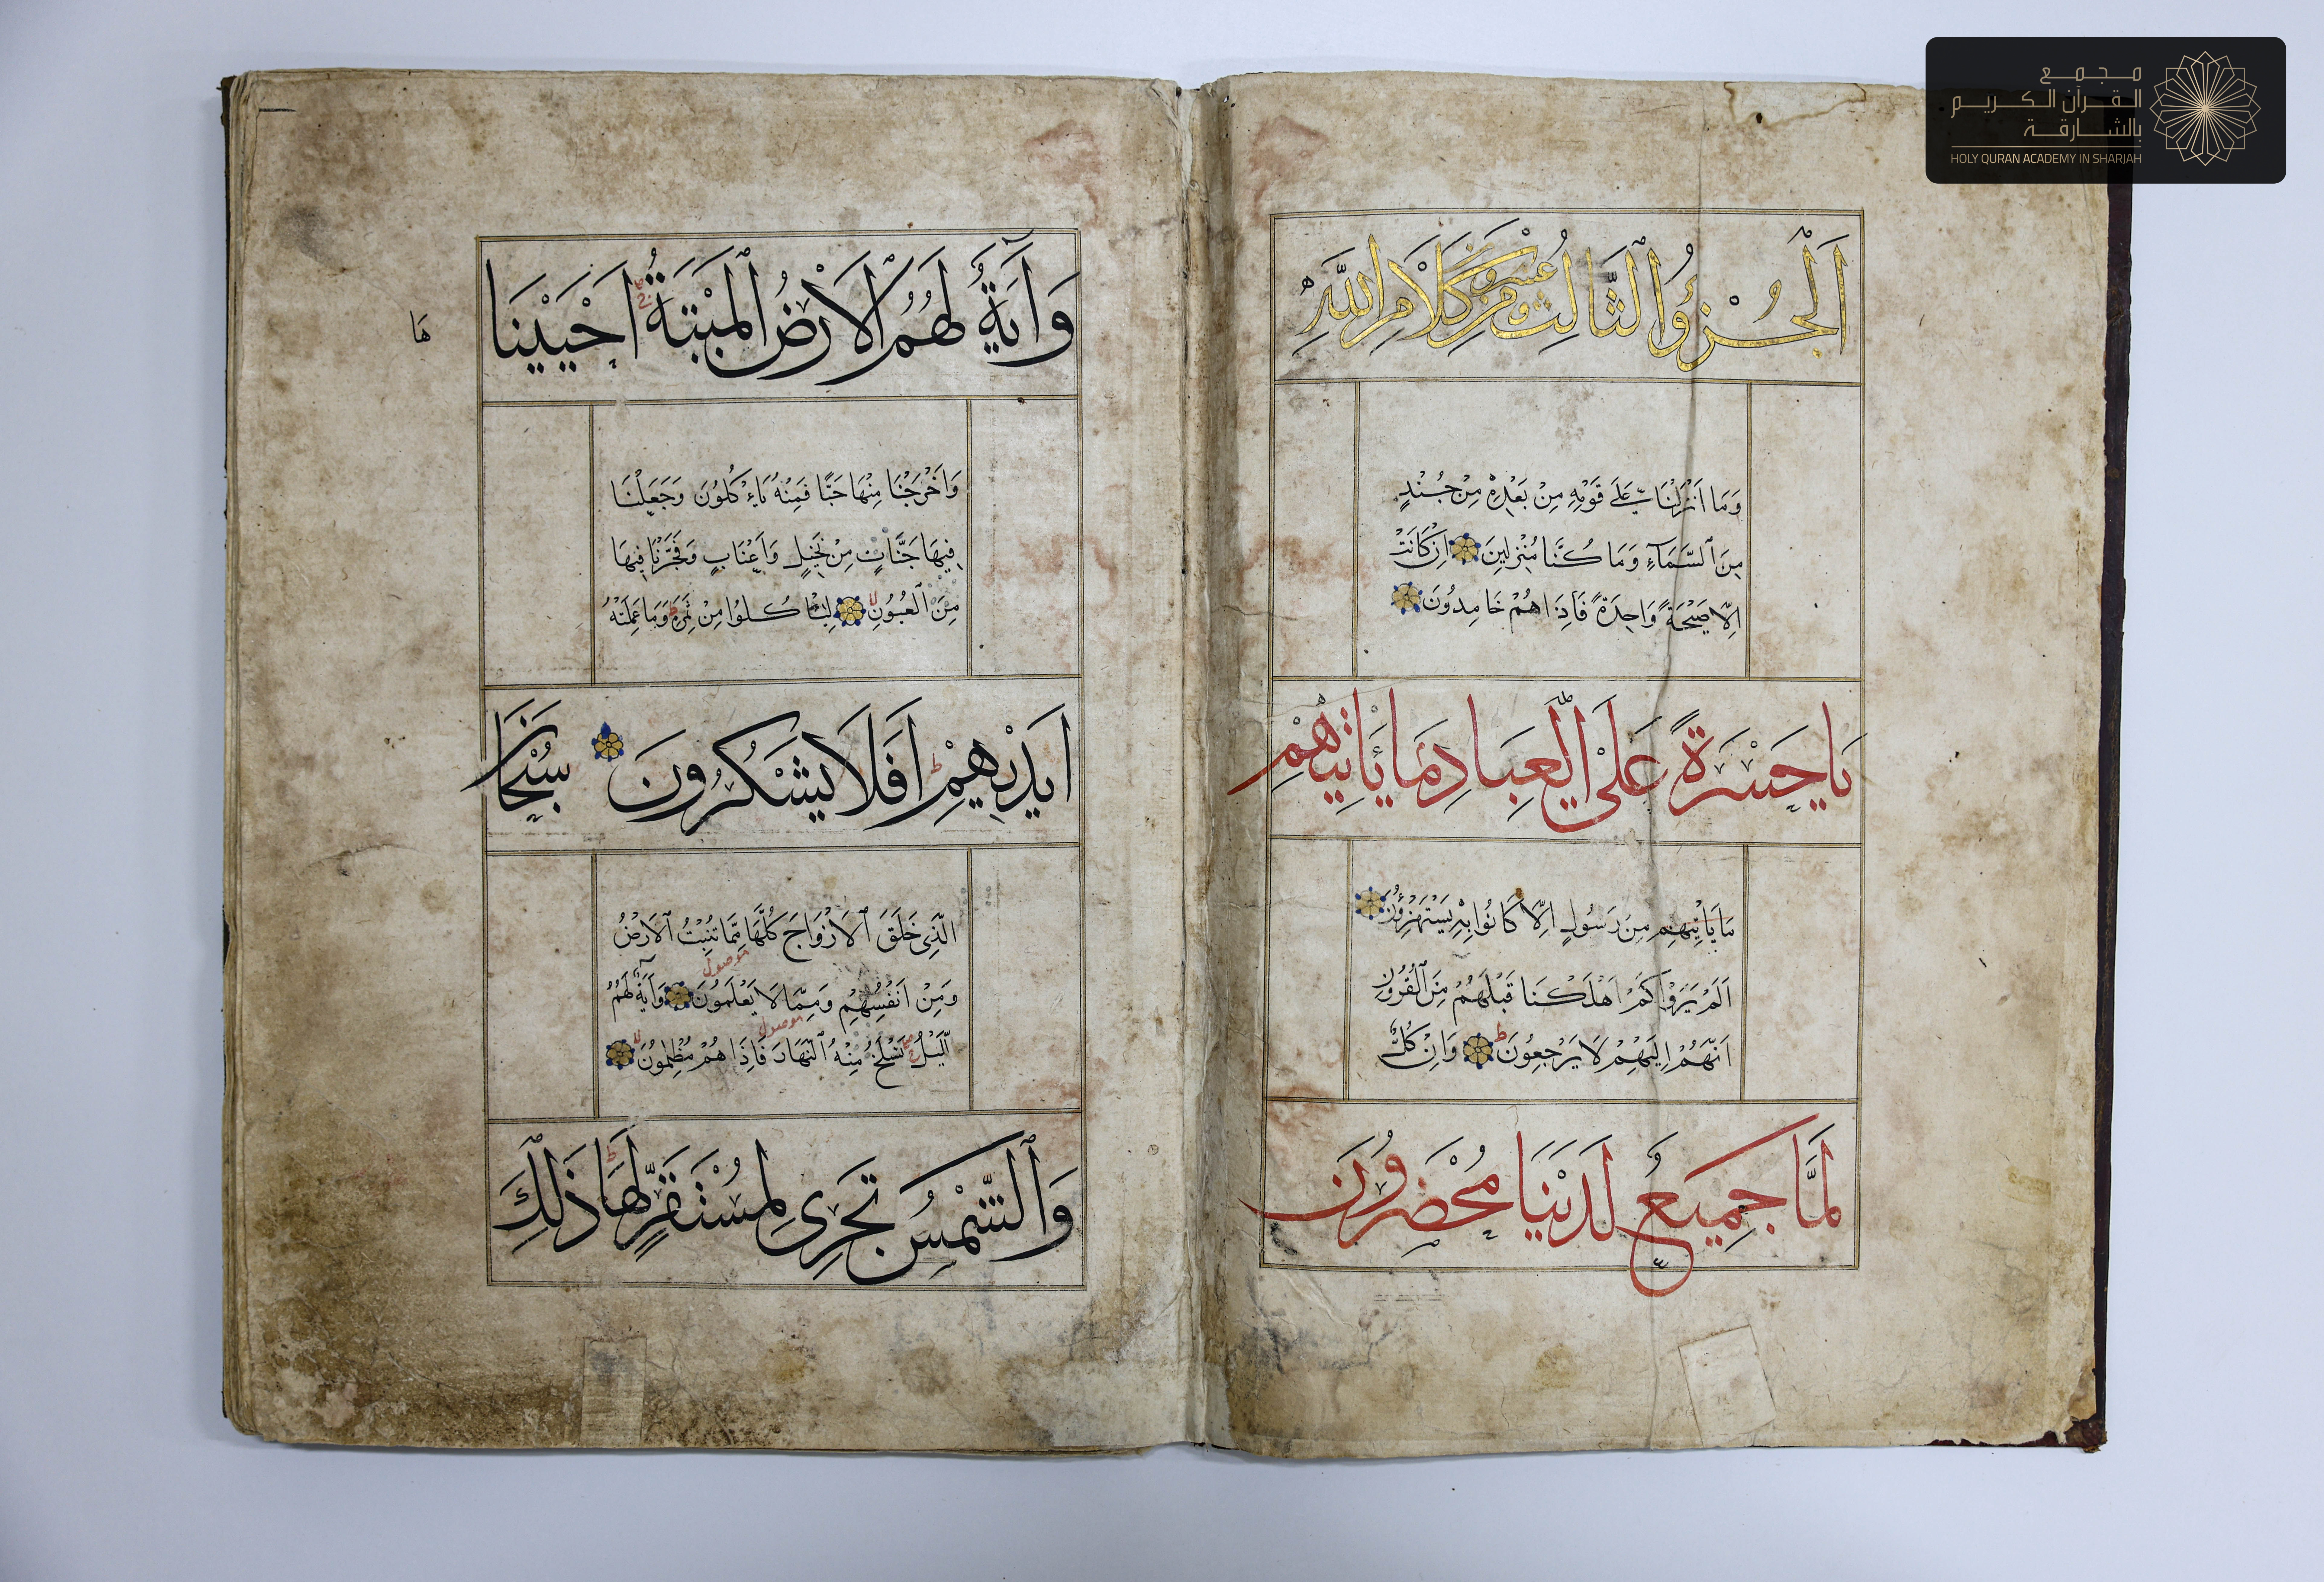 مجمع
القرآن الكريم
بالشارقة
HOLY QURAN ACADEMY IN SHARJAH
اَلْجُزْؤُ الثَّالِث وعشرون مِنْ كَلَامِ اللّٰهِ
وَمَا اَنْزَلْنَا عَلَى قَوْمِهِ مِنْ بَعْدِهِ مِنْ جُنْدٍ
مِنَ السَّمَآءِ وَمَا كُنَّا مُنْزِلِينَ اِنْ كَانَتْ
اِلَّا صَيْحَةً وَاحِدَةً فَاِذَا هُمْ خَامِدُونَ
يَا حَسْرَةً عَلَى الْعِبَادِ مَا يَاْتِيهِمْ
مَا يَاْتِيهِمْ مِنْ رَسُولٍ اِلَّا كَانُوا بِهِ يَسْتَهْزِؤُنَ
اَلَمْ يَرَوْا كَمْ اَهْلَكْنَا قَبْلَهُمْ مِنَ الْقُرُونِ
اَنَّهُمْ اِلَيْهِمْ لَا يَرْجِعُونَ وَاِنْ كُلٌّ
لَمَّا جَمِيعٌ لَدَيْنَا مُحْضَرُونَ
وَآيَةٌ لَهُمُ الْاَرْضُ الْمَيْتَةُ اَحْيَيْنَا
هَا
وَاَخْرَجْنَا مِنْهَا حَبًّا فَمِنْهُ يَاْكُلُونَ وَجَعَلْنَا
فِيهَا جَنَّاتٍ مِنْ نَخِيلٍ وَاَعْنَابٍ وَفَجَّرْنَا فِيهَا
مِنَ الْعُيُونِ لِيَاْكُلُوا مِنْ ثَمَرِهِ وَمَا عَمِلَتْهُ
اَيْدِيهِمْ اَفَلَا يَشْكُرُونَ سُبْحَانَ
الَّذِي خَلَقَ الْاَزْوَاجَ كُلَّهَا مِمَّا تُنْبِتُ الْاَرْضُ
موصول
وَمِنْ اَنْفُسِهِمْ وَمِمَّا لَا يَعْلَمُونَ وَآيَةٌ لَهُمُ
موصول
الَّيْلُ نَسْلَخُ مِنْهُ النَّهَارَ فَاِذَا هُمْ مُظْلِمُونَ
وَالشَّمْسُ تَجْرِي لِمُسْتَقَرٍّ لَهَا ذَلِكَ